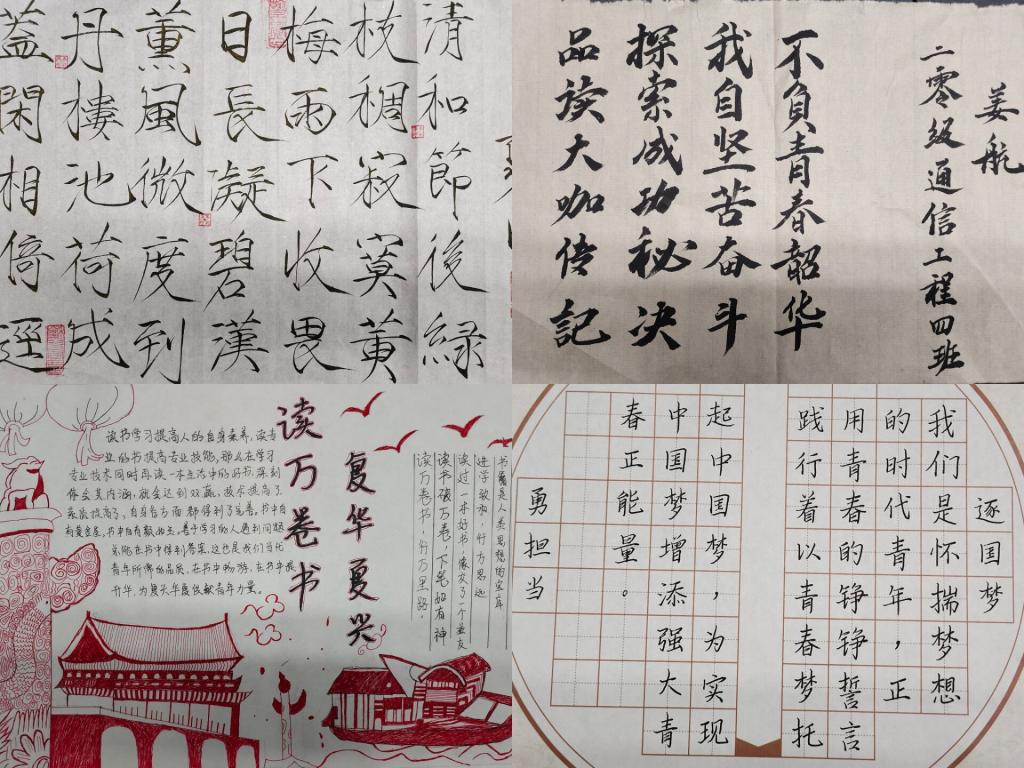 清和節後緑
枝稠寂寞黄
梅雨下收畏
日長凝碧漢
薰風微度到
丹樓池荷成
蓋閑相倚逕
姜航
二零级通信工程四班
不負青春韶华
我自坚苦奋斗
探索成功秘决
品读大咖传記
读万卷书
复华夏兴
读书学习提高人的自身素养,读专
业的书提高专业技能,那么在学习
专业技术同时再读一本生活中的好书,深刻
体会其内涵,就会达到双赢,技术提高了
素质提高了,自身各方面都得到了完善。书中自
有黄金屋,书中自有颜如玉。善于学习的人遇到问题
总能在书中得到答案,这也是我们当代
青年所需的品质,在书中畅游,在书中
升华,为复兴华夏贡献青年力量。
书籍是人类思想的宝库
进学致和,行方思远
读过一本好书,像交了一个益友
读书破万卷,下笔如有神
读万卷书,行万里路。
逐国梦
我们是怀揣梦想
的时代青年,正
用青春的铮铮誓言
践行着以青春梦托
起中国梦,为实现
中国梦增添强大青
春正能量。
勇担当